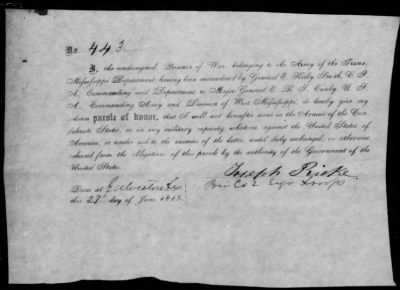 No. 443
I, the undersigned, Prisoner of War, belonging to the Army of the Trans.
Mississippi Department, having been surrendered by General E. Kirby Smith, C. S.
A., Commanding said Department, to Major General E. R. S. Canby, U. S.
A., Commanding Army and Division of West Mississippi, do hereby give my
solemn parole of honor, that I will not hereafter serve in the Armies of the Con-
federate States, or in any military capacity whatever against the United States of
America, or render aid to the enemies of the latter, until duly exchanged, or otherwise
released from the obligations of this parole by the authority of the Government of the
United States.
Joseph
Done at Galveston Tex
Troops
this 27 day of June 1865.